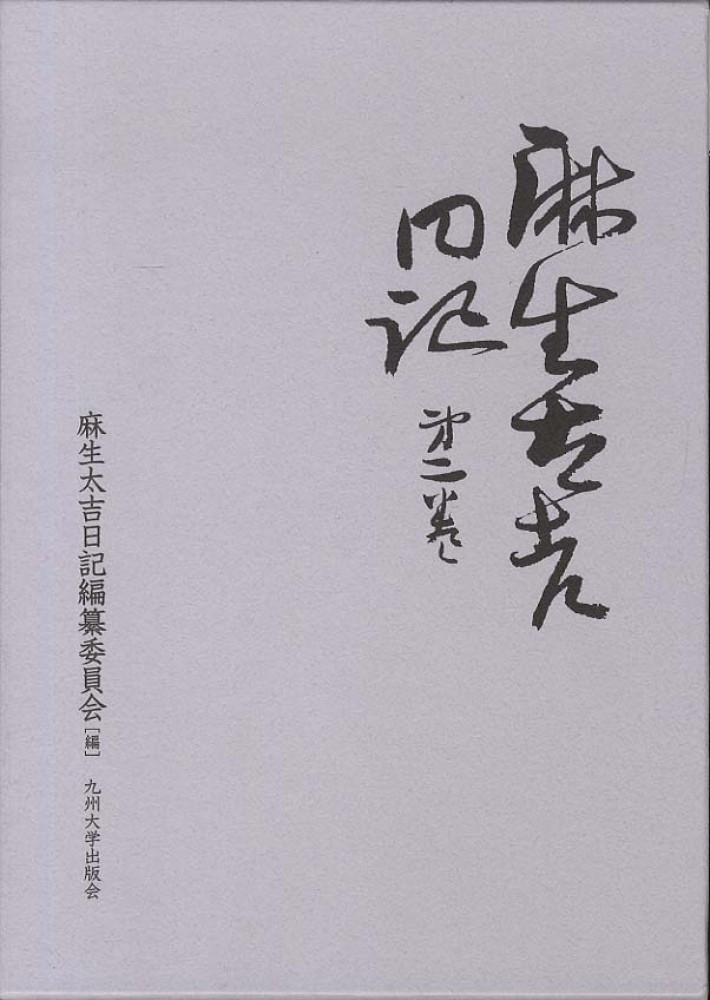 麻生太吉
日記
第二巻
麻生太吉日記編纂委員会［編］ 九州大学出版会